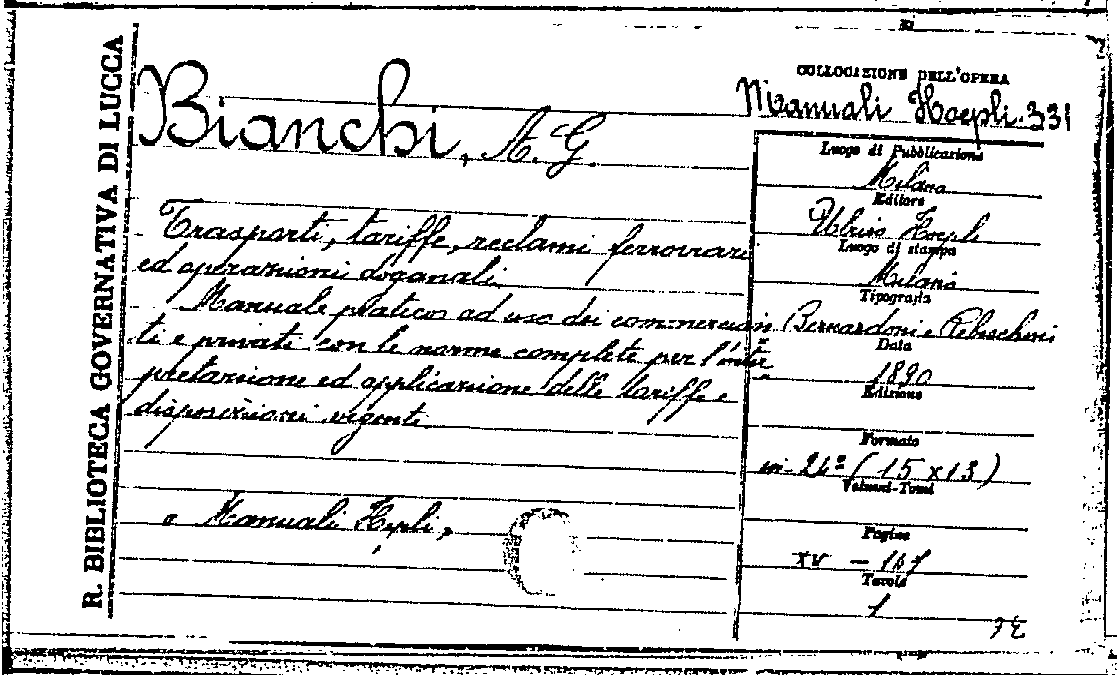 R. BIBLIOTECA GOVERNATIVA DI LUCCA
Bianchi, A. G.
Trasporti, tariffe, reclami ferroviari
ed operazioni doganali.
Manuale pratico ad uso dei commercian
ti e privati con le norme complete per l'inter
pretazione ed applicazione delle tariffe e
disposizioni vigenti.
Manuali Hoepli,
COLLOCAZIONE DELL'OPERA
Manuali Hoepli. 331
Luogo di Pubblicazione
Milano
Editore
Ulrico Hoepli
Luogo di stampa
Milano
Tipografia
Bernardoni e Rebeschini
Data
1890
Edizione
Formato
in-24º (15 x 13)
Volumi-Tomi
Pagine
XV —
Tavole
1